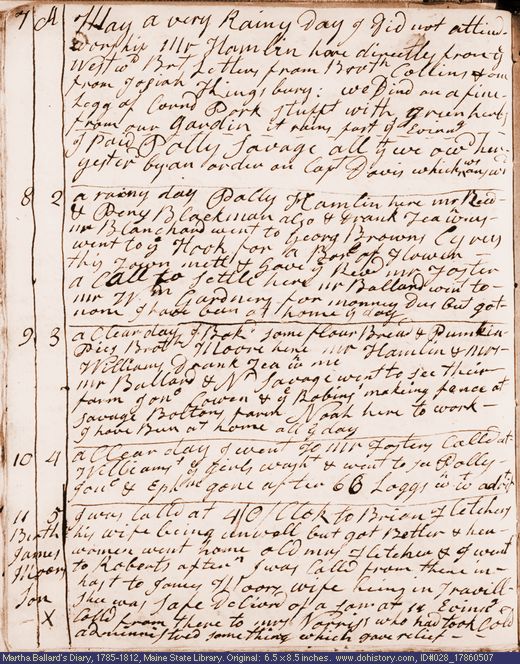 7 A May a very Rainy Day I Did not attend
worship Mr Hamlin here directly from ye
westwd Brt Letters from Broth Collins & one
from Josiah Kingsbury: we Dind on a fine
Legg of Cornd Pork stufft with green herbs
from our Gardin it rains fast ys Evinng
I Paid Polly Savage all yt we owd her
yester by an order on Capt Davis which
8 2 a rainy day Polly Hamlin here mr
& Peny Blackman also & drank Tea
mr Blanchard went to Georg Browns Cyrus
went to ye Hook for a Barl of Flower
this Town mett & Gave ye Revd mr Foster
a Call to settle here mr Ballard wint to
mr Wm Gardners for monney Due but got
none I have been at home ys day
9 3 a Clear day I Bak some flour Bread & Pumkin
Pies Broth Moore here mr Hamlin & mrs
Williams Drank Tea wt me
mr Ballard & Savage went to see their
farm Jono Cowen & ye Robins making fence at
Savage Boltons farm Noah here to work
I have Bun at home all ys day
10 4 a Clear day I went to mr Fosters Calld at
Williams ye Girls washt & went to see Polly
Jono & Ephm gone after 66 Loggs
11 5 I was Calld at 4 O Clok to Brian Fletchers
Birth his wife being unwell but got Better & her
James women went home old mrs Fletcher & I went
Moors to Roberts aftern I was Calld from there in
Son hast to James Moors wife being in Travill
she was safe Deliverd of a son at 11 Evinng
X Calld from there to mrs Norriss who had took Cold
administred something which gave relief
Martha Ballard's Diary, 1785-1812, Maine State Library. Original: 6.5 x 8.5 inches. www.dohistory.org, ID#028_17860507